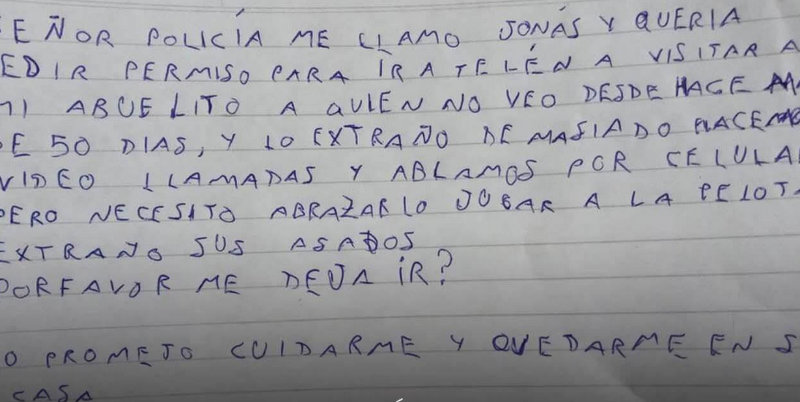 EÑOR POLICÍA ME LLAMO JONÁS Y QUERIA
EDIR PERMISO PARA ÍR A TELÉN A VISITAR A
MI ABUELITO A QUIEN NO VEO DESDE HACE MA
DE 50 DIAS, Y LO EXTRAÑO DEMASIADO HACEMO
VIDEO LLAMADAS Y ABLAMOS POR CELULA
PERO NECESITO ABRAZARLO JUGAR A LA PELOTA
EXTRAÑO SUS ASADOS
PORFAVOR ME DEJA ÍR?
O PROMETO CUIDARME Y QUEDARME EN S
CASA